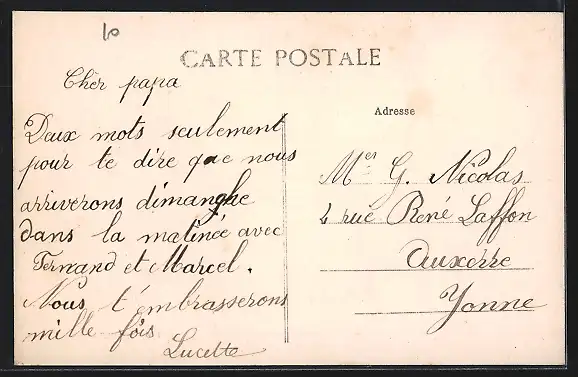 10
CARTE POSTALE
Cher papa
Deux mots seulement
pour te dire que nous
arriverons dimanghe
dans la matinée avec
Fernand et Marcel.
Nous t'embrasserons
mille fois
Lucette
Adresse
Mer G. Nicolas
rue René Laffon
Auxerre
Yonne